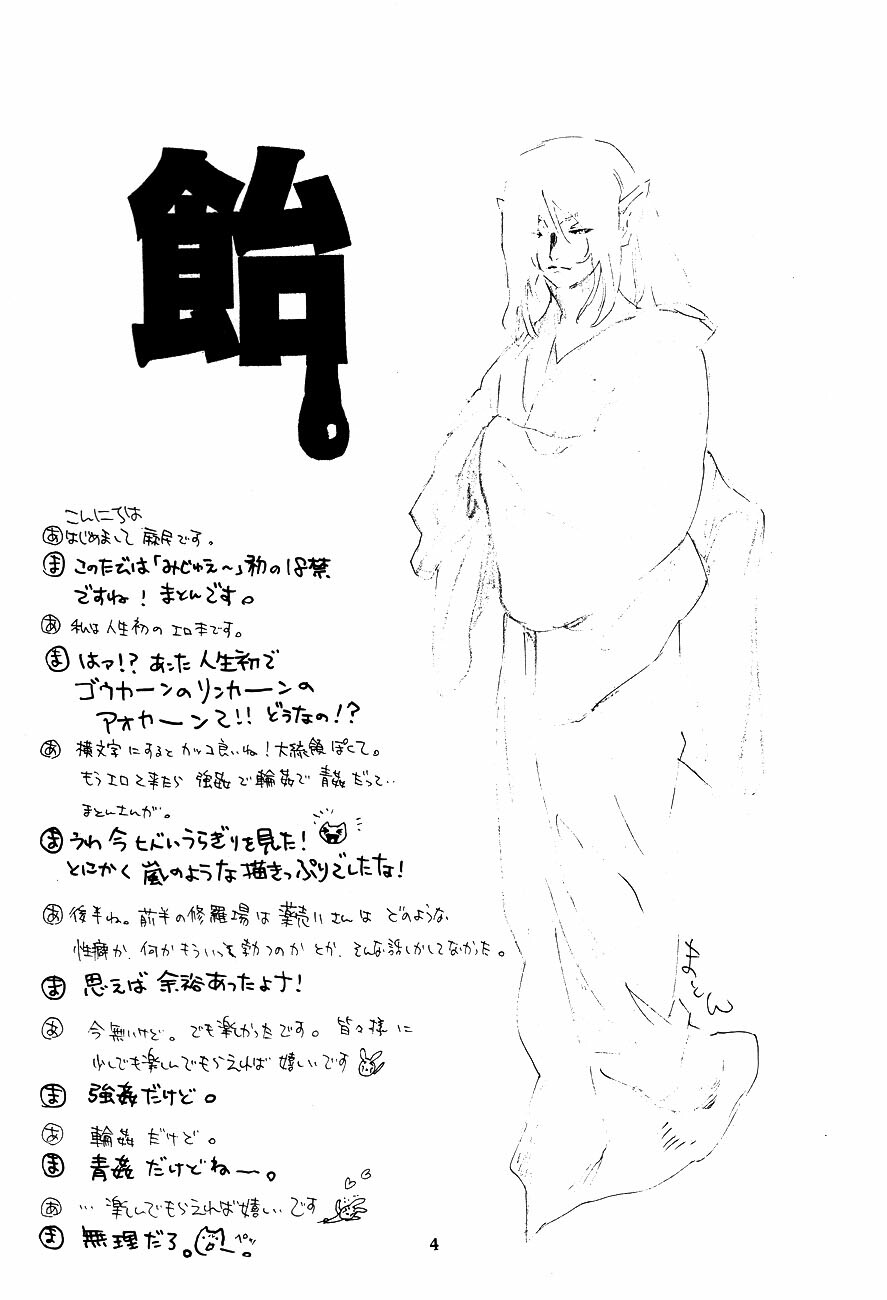 飴。
こんにちは
あ はじめまして 麻民です。
ま このたびは「みじゅえ~」初の18禁
ですね! まとんです。
あ 私は人生初のエロ本です。
ま はァ!? あった人生初で
ゴウカーンのリンカーンの
アオカーンて!! どうなの!?
あ 横文字にするとカッコ良いね!大統領ぽくて。
もうエロで来たら 強姦で輪姦で青姦だって‥
まとんさんが。
ま うわ 今 ヒドいうらぎりを見た!
とにかく 嵐のような描きっぷりでしたな!
あ 後半ね。前半の修羅場は 薬売りさんは どのような
性癖か、何か もういっを勃つのか とか、そんな話しかしてなかった。
ま 思えば 余裕あったよナ!
あ 今無いけど。でも楽しかったです。皆々様に
少しでも楽しんでもらえれば 嬉しいです
ま 強姦だけど。
あ 輪姦だけど。
ま 青姦だけどねー。
あ … 楽しんでもらえれば嬉しいです
ま 無理だろ。 ペッ
まとん
4